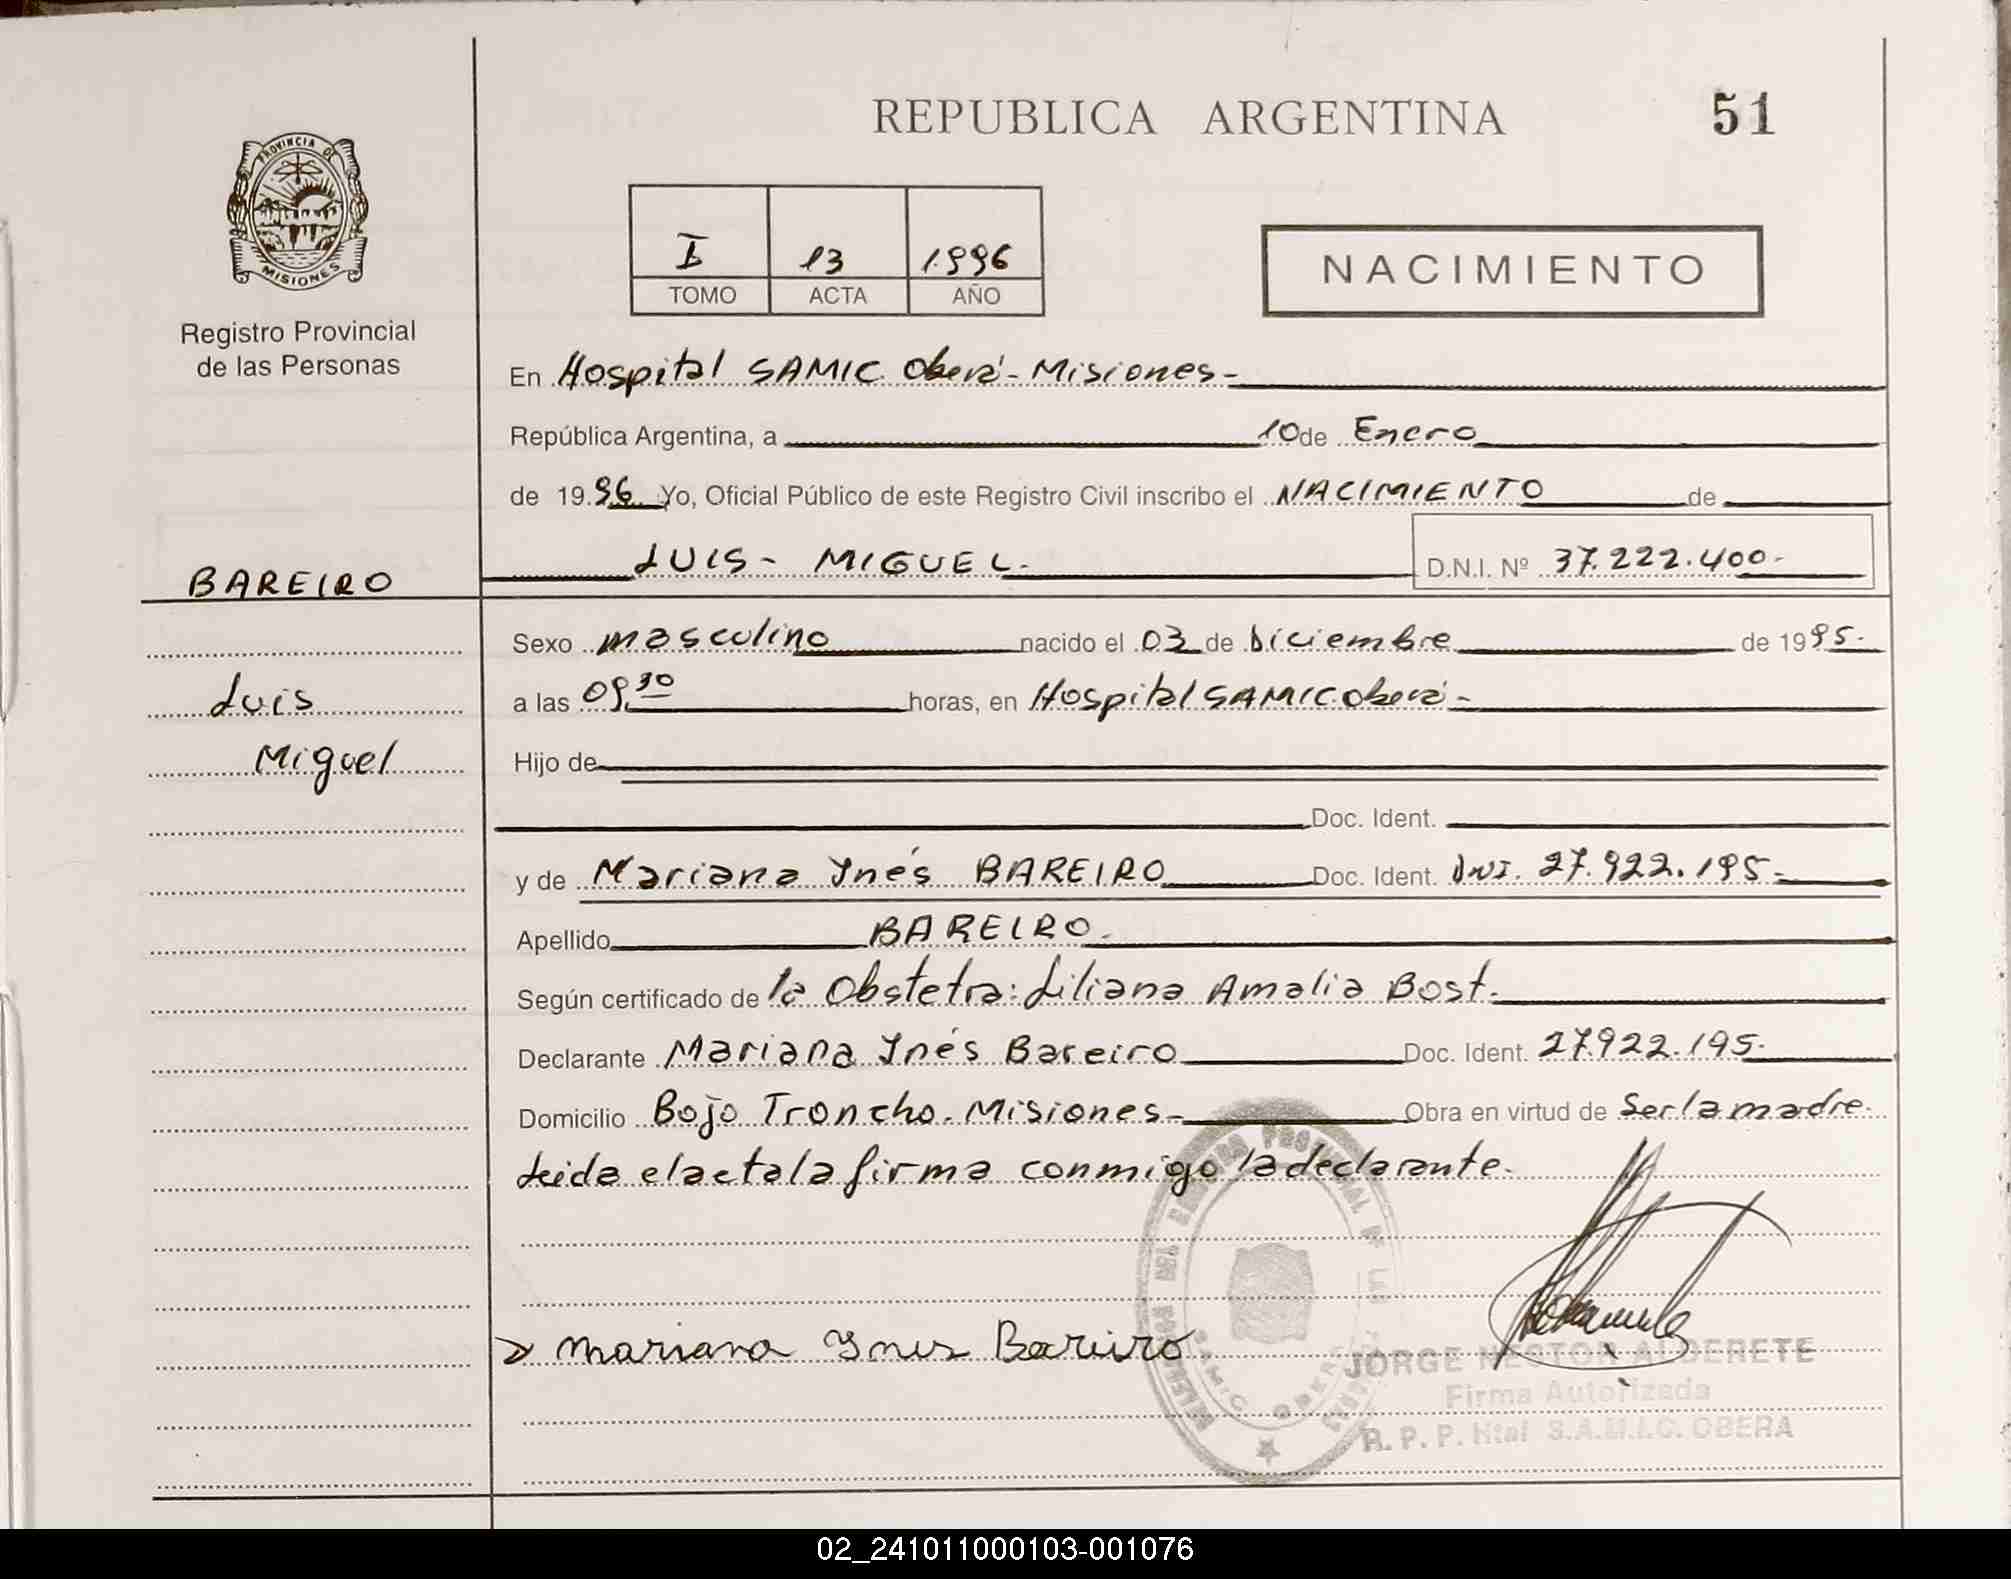 REPUBLICA ARGENTINA
51
PROVINCIA DE
MISIONES
Registro Provincial
de las Personas
I 13 1996
TOMO ACTA AÑO
NACIMIENTO
En Hospital SAMIC Oberá - Misiones -
República Argentina, a 10 de Enero
de 1996 Yo, Oficial Público de este Registro Civil inscribo el NACIMIENTO de
LUIS - MIGUEL.
D.N.I. Nº 37.222.400.-
BAREIRO
Luis
Miguel
Sexo masculino nacido el 03 de Diciembre de 1995.
a las 09,30 horas, en Hospital SAMIC Oberá -
Hijo de
Doc. Ident.
y de Mariana Inés BAREIRO Doc. Ident. DNI. 27.922.195.-
Apellido BAREIRO.
Según certificado de la Obstetra: Liliana Amalia Bost.
Declarante Mariana Inés Bareiro Doc. Ident. 27.922.195.
Domicilio Bojo Troncho. Misiones - Obra en virtud de Ser la madre.
Leida el acta la firma conmigo la declarante.
Mariana Ines Bareiro
JORGE NESTOR ALDERETE
Firma Autorizada
R. P. P. Htal S.A.M.I.C. OBERA
SAMIC OBERA
02_241011000103-001076